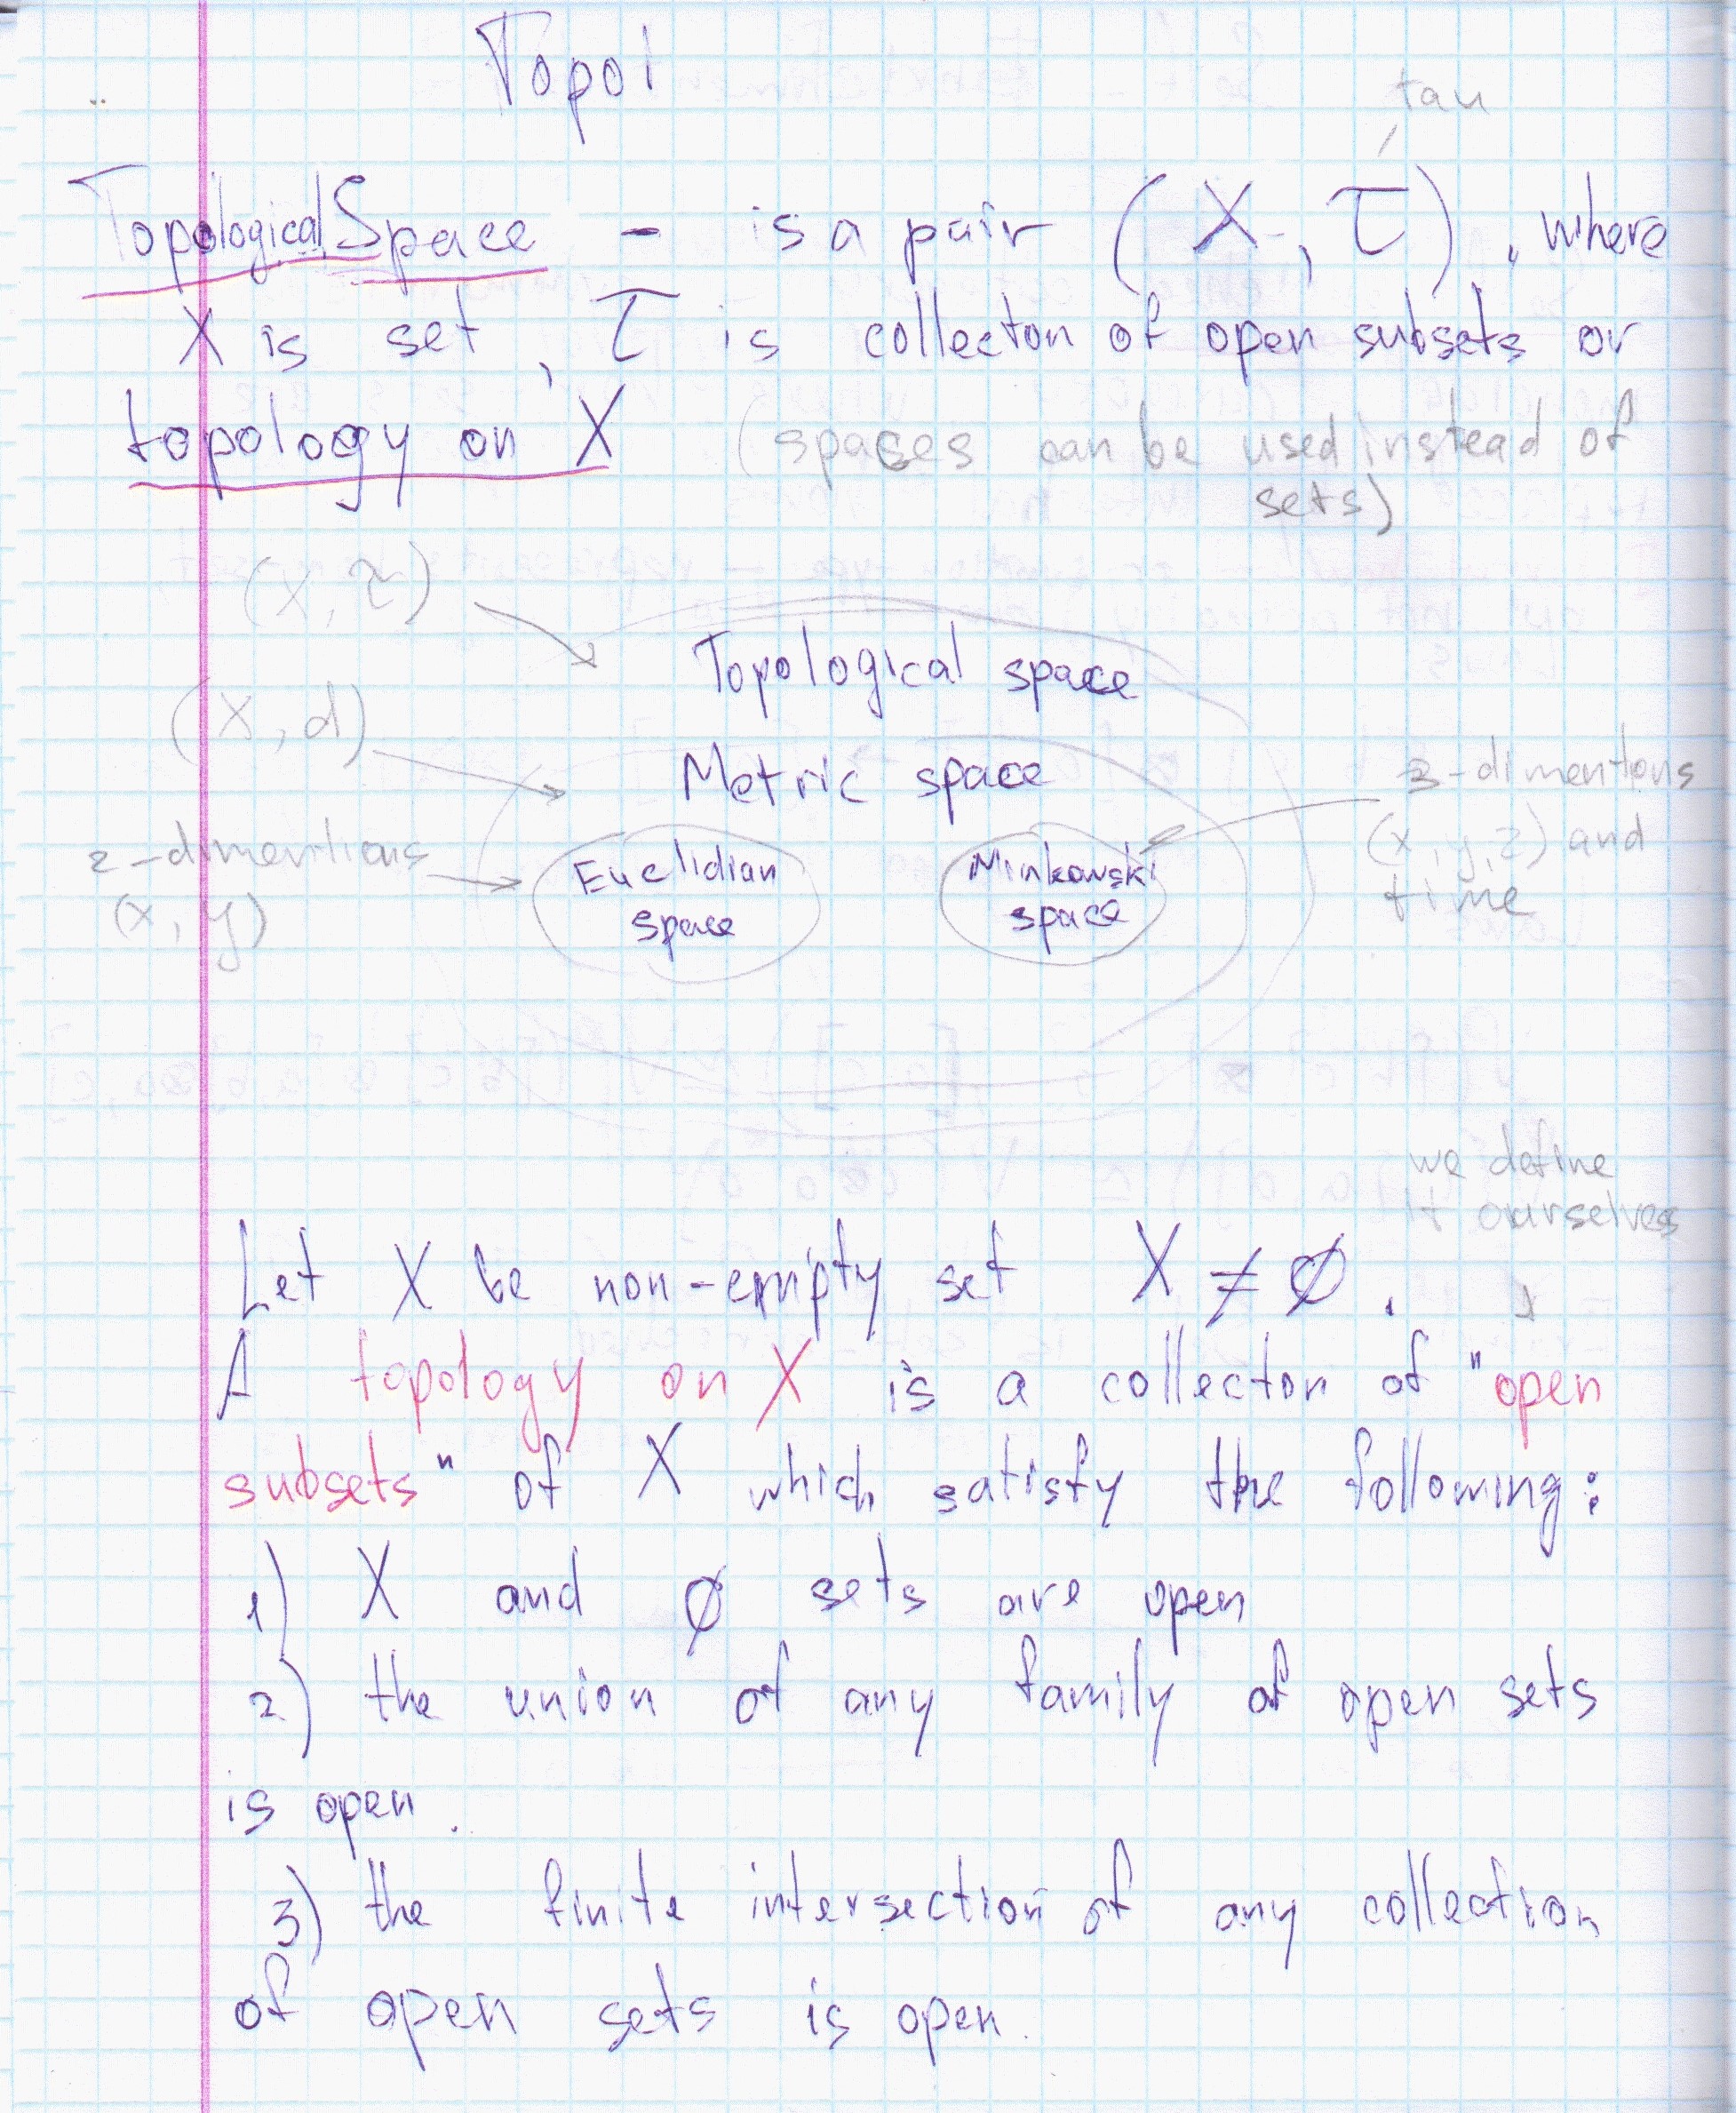 Topol
tau
Topological Space - is a pair (X, τ), where
X is set, τ is collecton of open subsets or
topology on X (spaces can be used instead of
sets)
(X, τ)
Topological space
(X, d)
Metric space
3-dimentons
(x, y, z) and
time
2-dimentions
(x, y)
Euclidian
space
Minkowski
space
we define
it ourselves
Let X be non-empty set X ≠ ∅.
A topology on X is a collecton of "open
subsets" of X which satisfy the following:
1) X and ∅ sets are open
2) the union of any family of open sets
is open.
3) the finite intersection of any collection
of open sets is open.